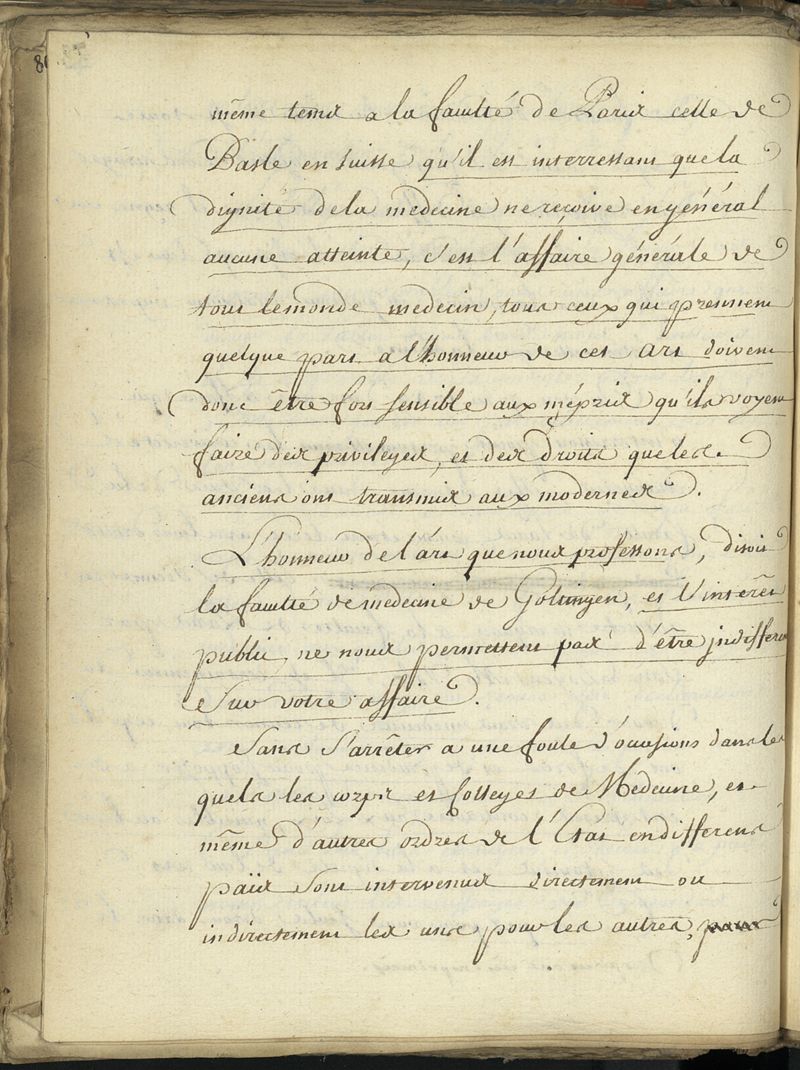 même tems a la faculté de Paris celle de
Basle en Suisse qu'il est interressant que la
dignité de la medecine ne reçoive en général
aucune atteinte, c'est l'affaire générale de
tout le monde medecin, tous ceux qui prennent
quelque part a l'honneur de cet art doivent
donc être fort sensible aux mépris qu'ils voyent
faire des privileges, et des droits que les
anciens ont transmis aux modernes.
L'honneur de l'art que nous professons, disoit
la faculté de medecine de Gottingen, et l'interêt
public, ne nous permettent pas d'être jndifferen
sur votre affaire.
Sans s'arrêter a une foule d'occasions dans les
quels les corps et Colleges de Medecine, et
même d'autres ordres de l'Etat en differens
païis sont intervenus directement ou
indirectement les uns pour les autres,